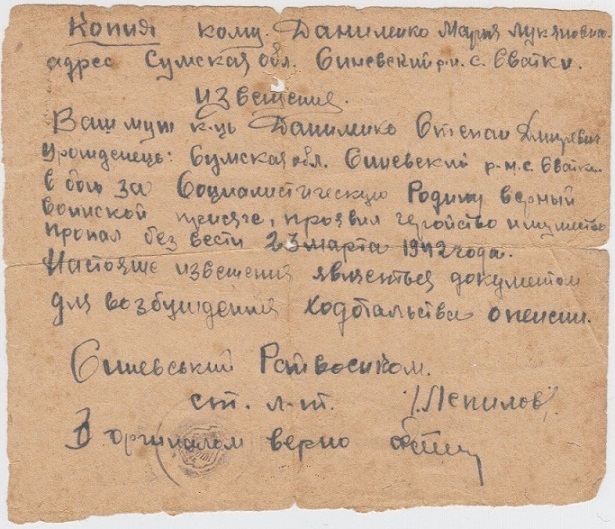 Копия кому. Даниленко Мария Лукяновна
адрес Сумская обл. Синевский р-н. с. Евайки.
извещения.
Ваш муж к-ць Данилико Степан Дмитревич
Урожденець: Сумская обл. Синевский р-н. с. Евайки.
в бою за Социалистическую Родину верный
воинской присяге, проявил геройство и мужество
пропал без вести 23 марта 1942 года.
Настояще извещения являеться документом
для возбуждения ходотальства о пенсии.
Синевський Райвоенком.
ст. л-т. /Лепилов/
З оригиналом верно